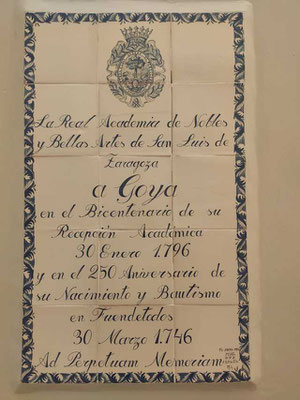 La Real Academia de Nobles
y Bellas Artes de San Luis de
Zaragoza
a Goya
en el Bicentenario de su
Recepción Académica
30 Enero 1.796
y en el 250 Aniversario de
su Nacimiento y Bautismo
en Fuendetodos
30 Marzo 1.746
Ad Perpetuam Memoriam